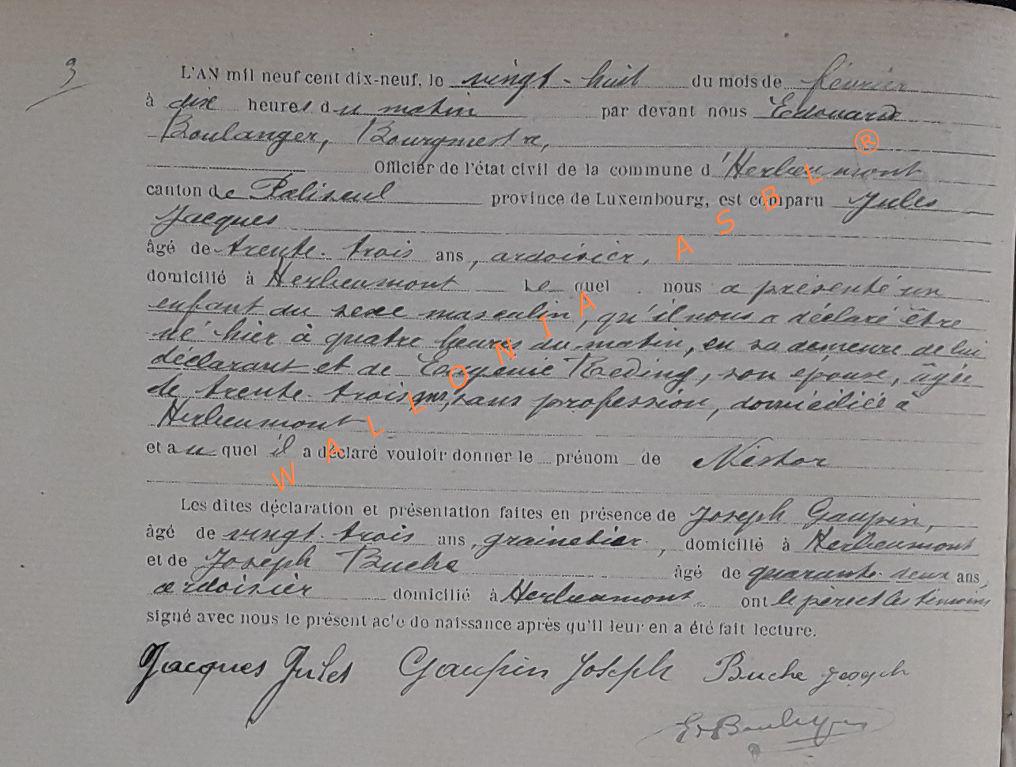 3
L'AN mil neuf cent dix-neuf, le vingt-huit du mois de février
à dix heures du matin par devant nous Edouard
Boulanger, Bourgmestre,
Officier de l'état civil de la commune d'Herbeumont
canton de Paliseul province de Luxembourg, est comparu Jules
Jacques
âgé de trente-trois ans, ardoisier,
domicilié à Herbeumont le quel nous a présenté un
enfant du sexe masculin, qu'il nous a déclaré être
né hier à quatre heures du matin, en sa demeure de lui
déclarant et de Eugénie Reding, son épouse, âgée
de trente-trois ans, sans profession, domiciliée à
Herbeumont
et au quel il a déclaré vouloir donner le prénom de Nestor
Les dites déclaration et présentation faites en présence de Joseph Gaupin,
âgé de vingt-trois ans, grainetier, domicilié à Herbeumont
et de Joseph Buche âgé de quarante-deux ans,
ardoisier domicilié à Herbeumont ont le père et les témoins
signé avec nous le présent acte de naissance après qu'il leur en a été fait lecture.
Jacques Jules Gaupin Joseph Buche Joseph
Ed Boulanger
WALLONIA ASBL ®